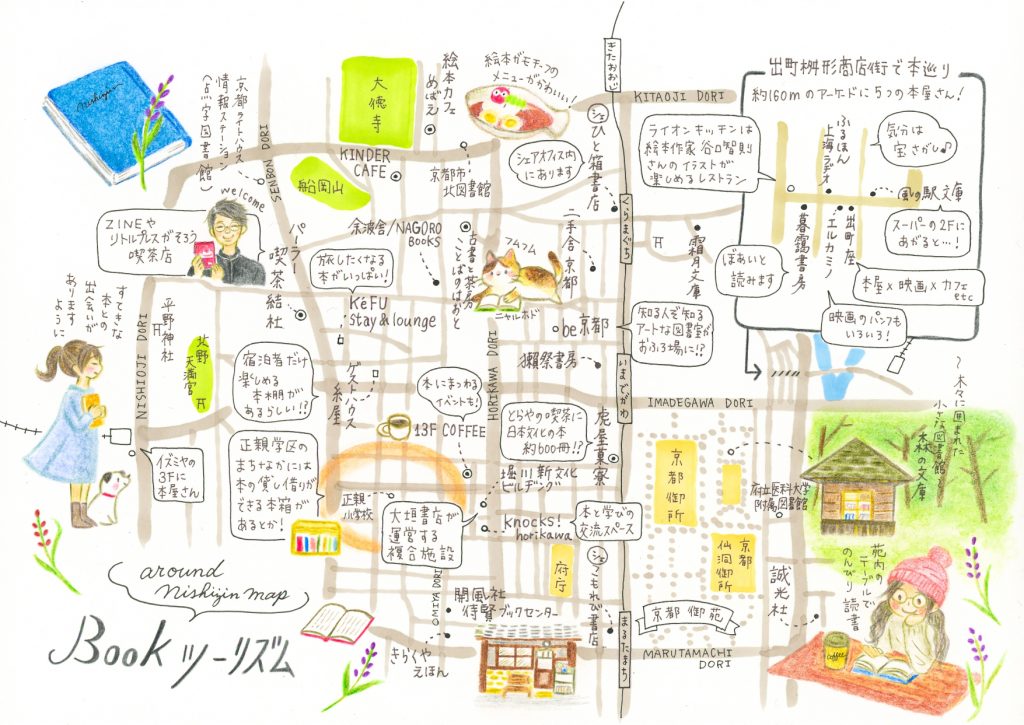 Nishijin
京都ライトハウス
情報ステーション
(点字図書館)
SENBON DORI
大徳寺
船岡山
KINDER
CAFE
絵本カフェ
めばえ
京都市
北図書館
絵本がモチーフの
メニューがかわいい!
シェアオフィス内
にあります
シェ
ひと箱書店
きたおおじ
KITAOJI DORI
出町桝形商店街で本巡り
約160mのアーケードに5つの本屋さん!
ライオンキッチンは
絵本作家 谷口智則
さんのイラストが
楽しめるレストラン
ふるほん
上海ラジオ
気分は
宝さがし♪
風の駅文庫
スーパーの2Fに
あがると…!
出町座
エルカミノ
暮靄書房
ぼあいと
読みます
本屋×映画×カフェ
etc
映画のパンフも
いろいろ!
welcome
ZINEや
リトルプレスがそろう
喫茶店
パーラー
喫茶結社
余波舎/NAGORO
Books
古書と茶房
ことばのはおと
旅したくなる
本がいっぱい!
KéFU
stay & lounge
フムフム
ニャルホド
二手舎 京都
くらまぐち
霜月文庫
be京都
知る人ぞ知る
アートな図書室が
おふろ場に!?
獺祭書房
いまでがわ
IMADEGAWA DORI
すてきな
本との
出会いが
あります
ように
NISHIOJI DORI
平野神社
北野
天満宮
宿泊者だけ
楽しめる
本棚が
あるらしい!?
ゲストハウス
糸屋
HORIKAWA DORI
本にまつわる
イベントも!
13F COFFEE
とらやの喫茶に
日本文化の本
約600冊!?
虎屋菓寮
イズミヤの
3Fに
本屋さん
正親学区の
まちなかには
本の貸し借りが
できる本箱が
あるとか!
正親
小学校
堀川新文化
ビルヂング
大垣書店が
運営する
複合施設
knocks!
horikawa
本と学びの
交流スペース
シェ
こもれび書店
京都御所
京都
仙洞御所
府立医科大学
附属図書館
〜木々に囲まれた
小さな図書館〜
森の文庫
府庁
京都御苑
誠光社
苑内の
テーブルで
のんびり読書
coffee
OMIYA DORI
開風社
待賢ブックセンター
きらくや
えほん
まるたまち
MARUTAMACHI
DORI
around
Nishijin map
Book ツーリズム